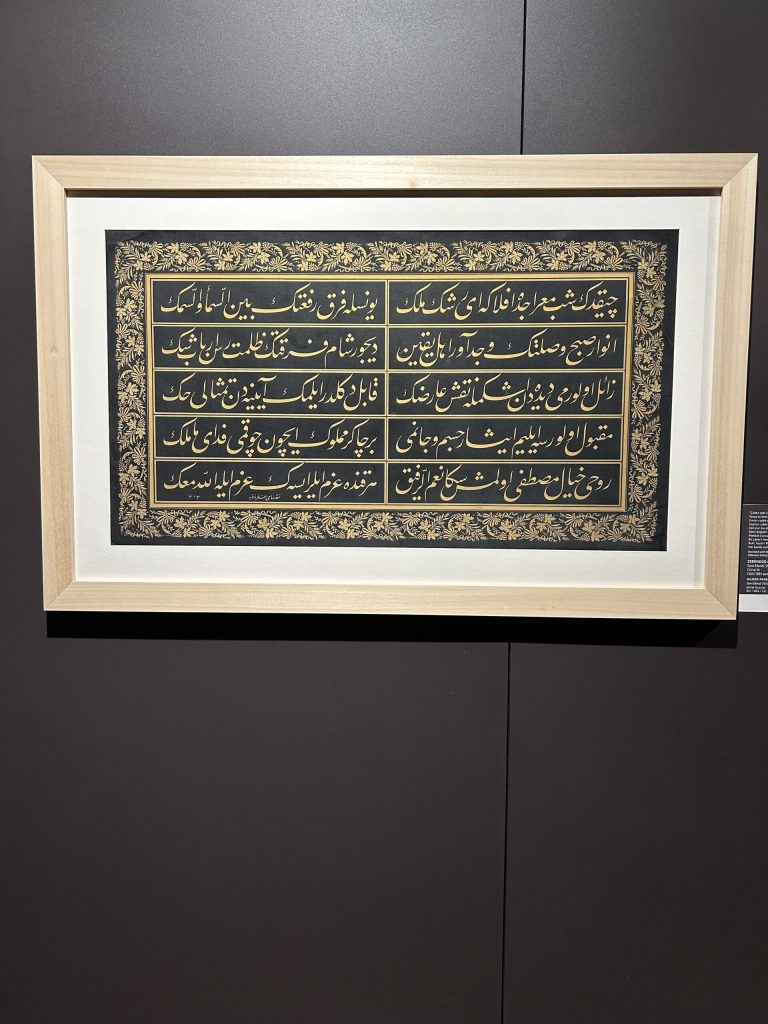 چیقدك شب معراجده افلاكه ای رشك ملك
بو نسله فرق رفعتك بین السما و السمك
انوار صبح وصلتك وجدآور اهل یقین
دیجور شام فرقتك ظلمت رسان ارباب شك
زائل اولورمی دیده دن اشكمله نقش عارضك
قابل دكلدر ایلمك آیینه دن تمثالی حك
مقبول اولورسه ایلیم ایثار جسم و جانمی
بر چاكر مملوك ایچون چوقمی فدای ما ملك
روحی خیال مصطفی اولمش سكا نعم الرفیق
هر قنده عزم ایلر ایسه ك عزم ایله الله معك